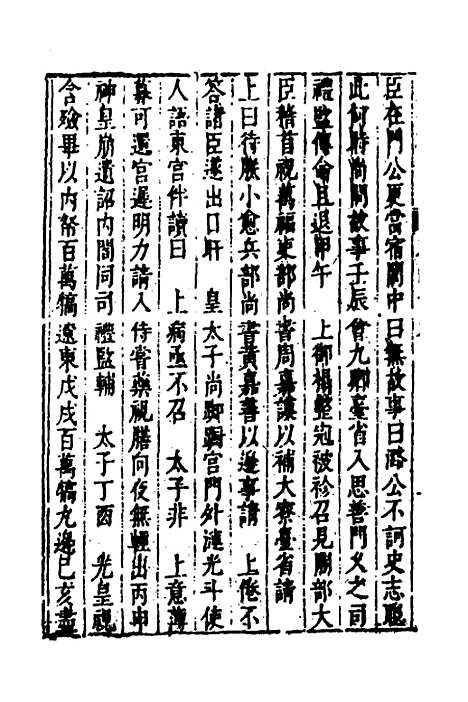 臣在門公更當宿閣中曰無故事曰潞公不訶史志聰
此何時尚問故事子辰會九卿臺省入思善門久之司
禮監傳命且退甲午　上御榻整冠被袗召見閣部大
臣稽首視萬福吏部尚書周嘉謨以補大寮臺省請
上曰待朕小愈兵部尚書黃嘉善以邊事請　上倦不
答諸臣遂出日旰　皇太子尚踟躕宮門外漣光斗使
人語東宮伴讀曰　上病亟不召　太子非　上意薄
暮可還宮遲明力請入侍嘗藥視膳向使無輕出丙申
神皇崩遺詔內閣同司禮監輔　太子丁酉　光皇視
含殮畢以內帑百萬犒遼東戊戌百萬犒九邊已亥盡